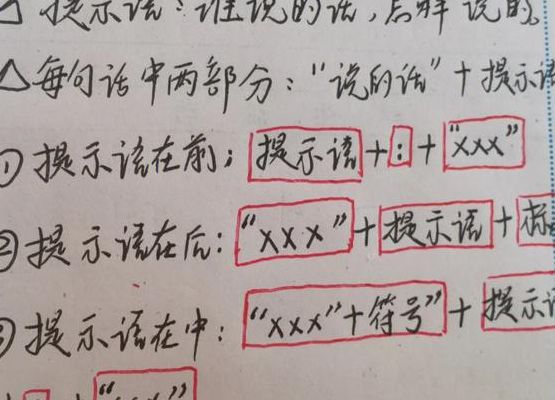 提示语:谁说的话,怎样说的
△每句话中两部分:"说的话"+提示语
①提示语在前:提示语+:+"xxx"
②提示语在后:"xxx"+提示语+标
③提示语在中:"xxx"+符号"+提示语